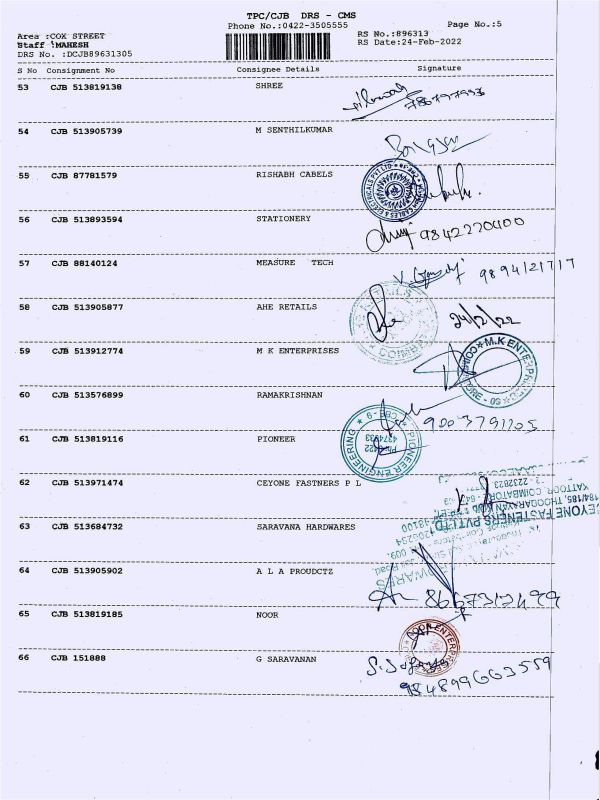 TPC/CJB DRS - CMS
Phone No.:0422-3505555
Page No.:5
Area :COX STREET
Staff :MAHESH
DRS No. :DCJB89631305
RS No.:896313
RS Date:24-Feb-2022
S No Consignment No Consignee Details Signature
53 CJB 513819138 SHREE
54 CJB 513905739 M SENTHILKUMAR
55 CJB 87781579 RISHABH CABELS
56 CJB 513893594 STATIONERY
9842220400
57 CJB 88140124 MEASURE TECH
9894121717
58 CJB 513905877 AHE RETAILS
24/2/22
59 CJB 513912774 M K ENTERPRISES
M.K ENTERPRISES
60 CJB 513576899 RAMAKRISHNAN
9003791105
61 CJB 513819116 PIONEER
PIONEER ENGINEERING
Ph:0422
4374933
CBE-9
62 CJB 513971474 CEYONE FASTNERS P L
CEYONE FASTENERS PVT LTD
63 CJB 513684732 SARAVANA HARDWARES
64 CJB 513905902 A L A PROUDCTZ
8667312499
65 CJB 513819185 NOOR
NOOR ENTERPRISES
66 CJB 151888 G SARAVANAN
984899663559